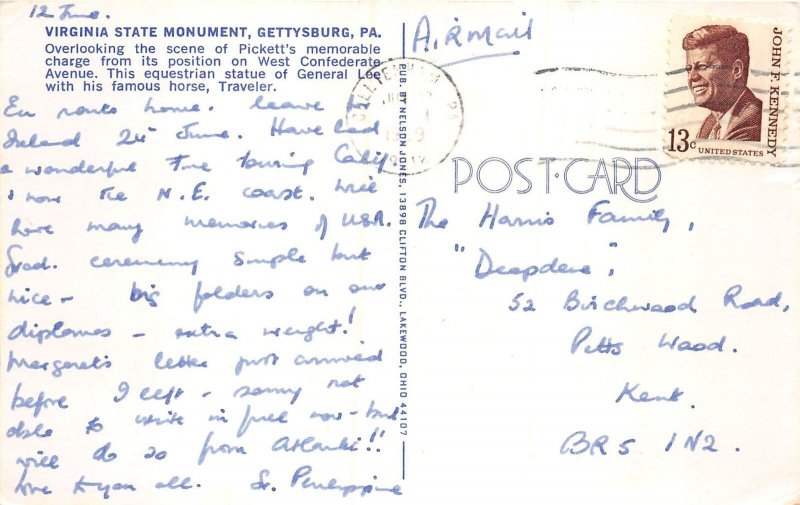 12 June.
VIRGINIA STATE MONUMENT, GETTYSBURG, PA.
Overlooking the scene of Pickett's memorable
charge from its position on West Confederate
Avenue. This equestrian statue of General Lee
with his famous horse, Traveler.
En route home. Leave for
Ireland 24 June. Have had
a wonderful time touring Calif.
& now the N.E. coast. Will
have many memories of USA.
Grad. ceremony simple but
nice - big folders on our
diplomas - extra weight!
Margaret's letter just arrived
before I left - sorry not
able to write in full now - but
will do so from
love to you all. Sr. Philippine
PUB. BY NELSON JONES, 13898 CLIFTON BLVD., LAKEWOOD, OHIO 44107
Airmail
POST-CARD
JOHN F. KENNEDY
13c
UNITED STATES
The Harris Family,
"Deepdene",
52 Birchwood Road,
Petts Wood.
Kent.
BR5 1N2.